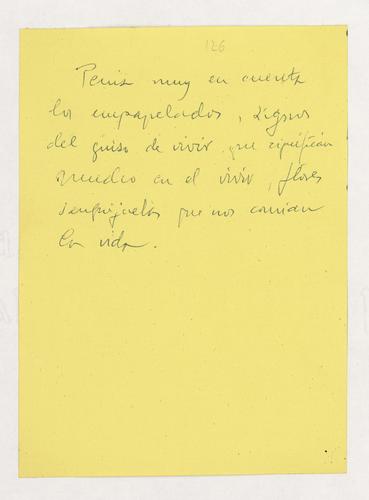 126
Tenía muy en cuenta
los empapelados, signos
del guiso de vivir que significan
mucho en el vivir, flores
sanguijuelas que nos comían
la vida.